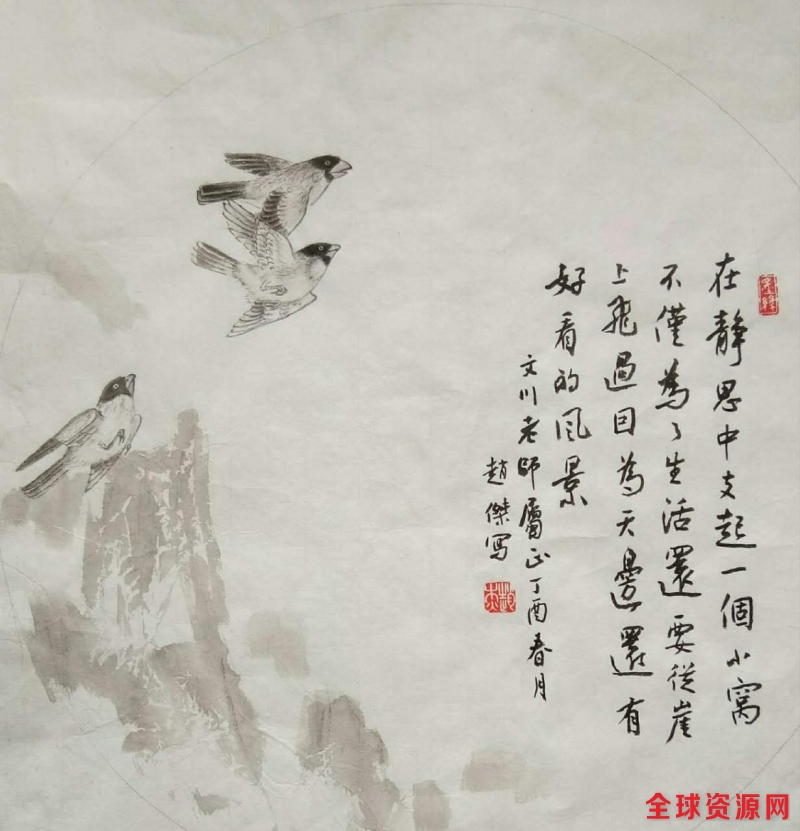 在靜思中支起一個小窩
不僅為了生活還要從崖
上飛過因為天邊還有
好看的风景
文川老師屬正丁酉春月
趙傑寫
全球资源网